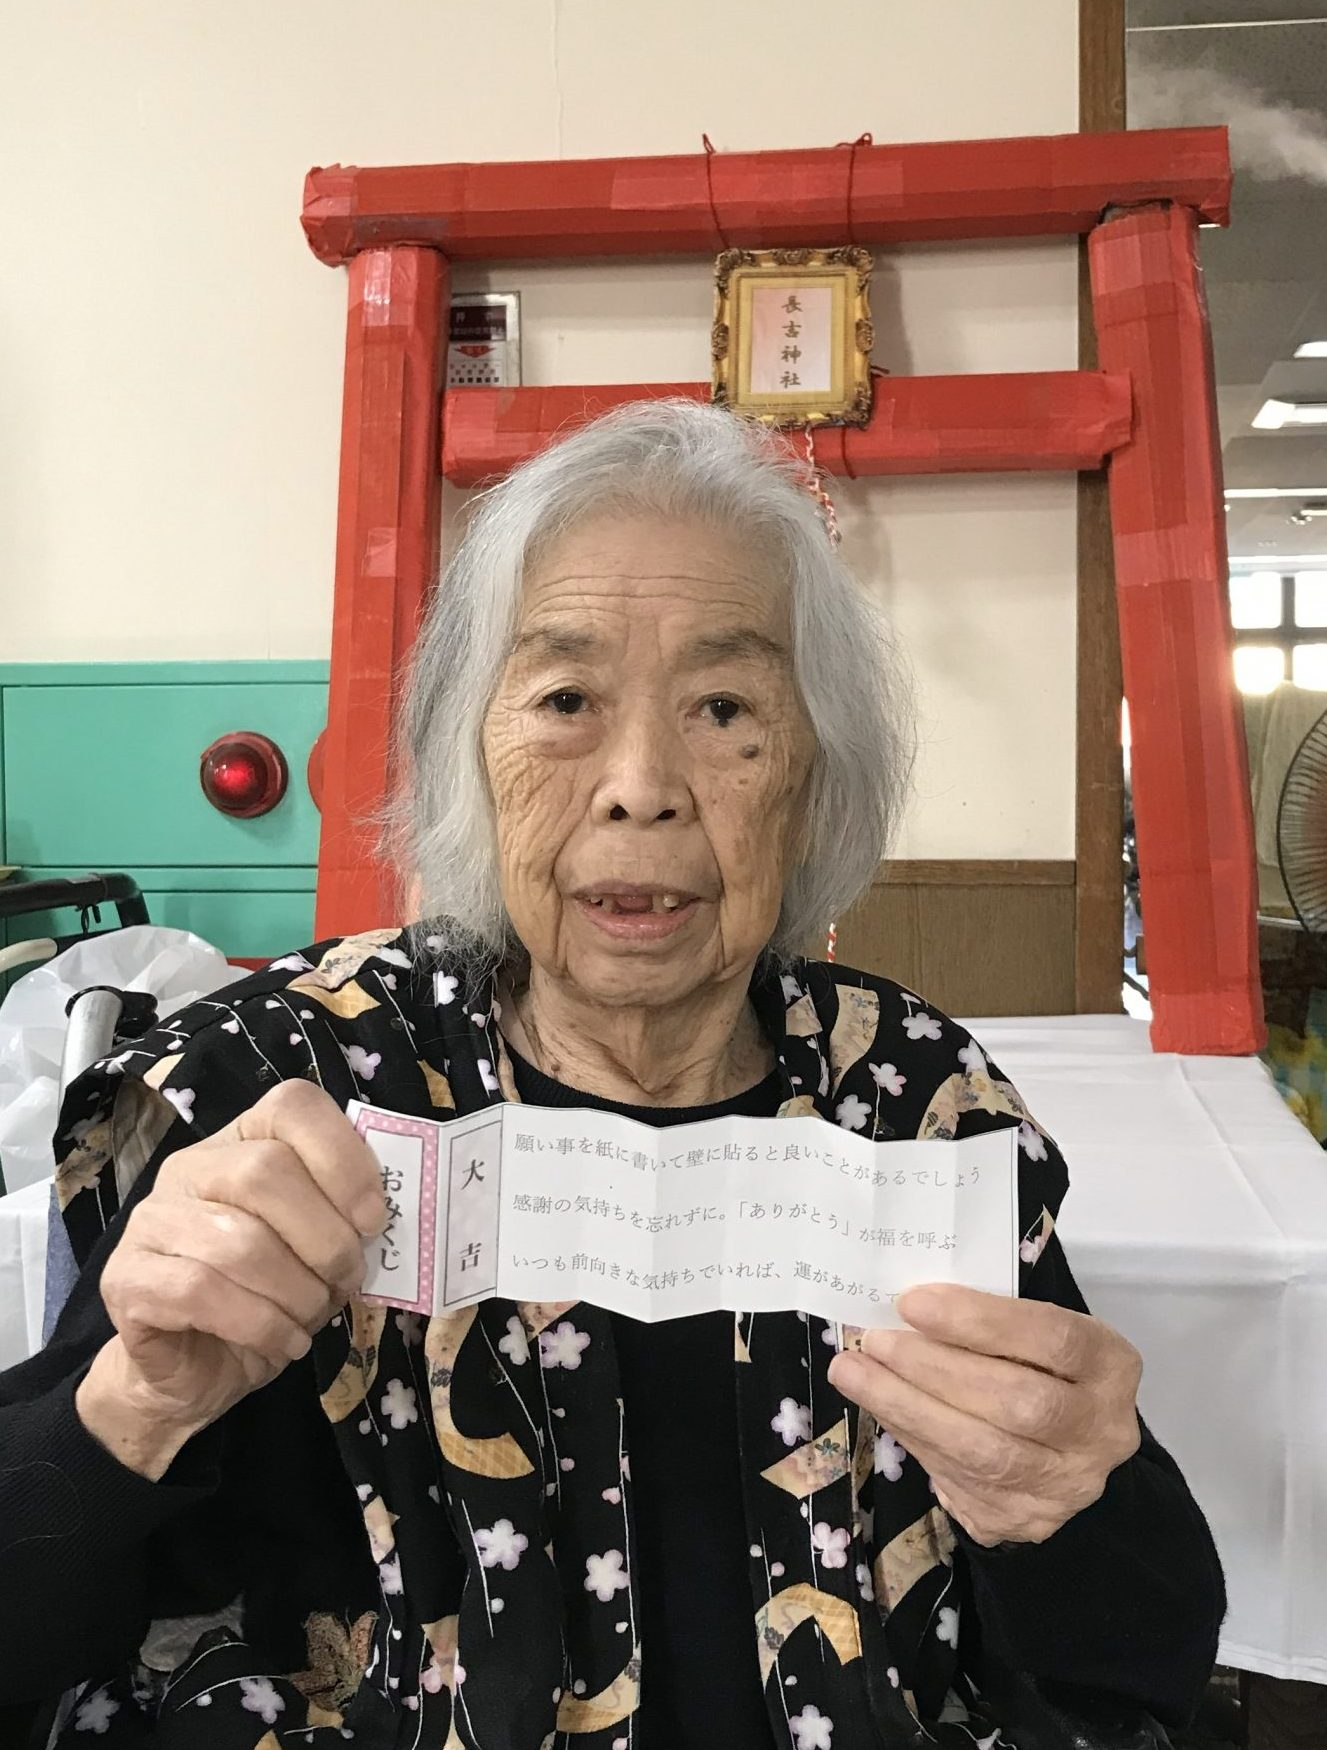 長吉神社
おみくじ
大吉
願い事を紙に書いて壁に貼ると良いことがあるでしょう
感謝の気持ちを忘れずに。「ありがとう」が福を呼ぶ
いつも前向きな気持ちでいれば、運があがるで